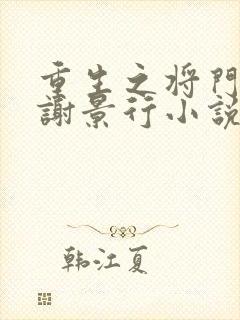 重生之将門
謝景行小説
韩江夏